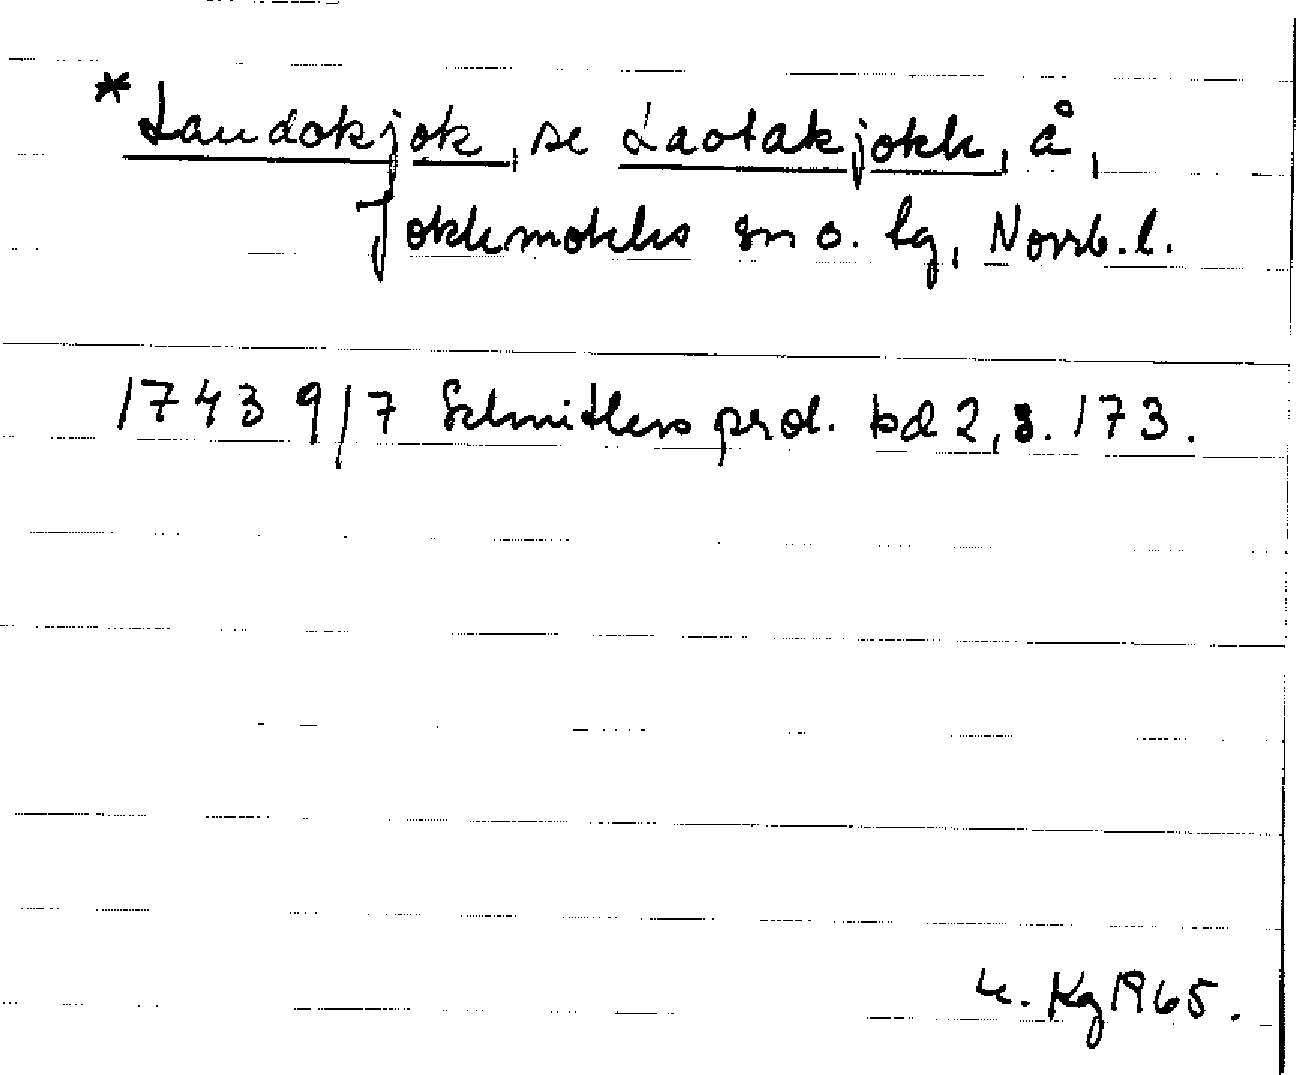 *Laudokjok, se Laotakjokk, å,
Jokkmokks sn o. lg, Norrb. l.
1743 9/7 Schnitlers prot. bd 2, s. 173.
Kg 1965.